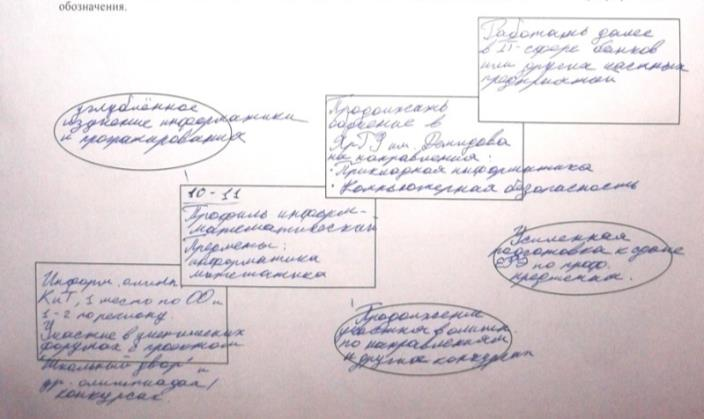 обозначения.
Работать далее
в IT-сфере банков
или других частных
предприятий
углублённое
изучение информатики
и программирования
Продолжать
обучение в
ЯрГУ им. Демидова
на направления:
• Прикладная информатика
• Компьютерная безопасность
10-11
Профиль информ-
математический
Предметы:
информатика
математика
Усиленная
подготовка к сдаче
ЕГЭ по проф.
предметам.
Информ. олимп.
КиТ, 1 место по ОО и
1-2 по региону.
Участие в ученических
форумах с проектом
"Школьный двор" и
др. олимпиадах/
конкурсах.
Продолжение
участия в олимп.
по направлениям
и других конкурсах